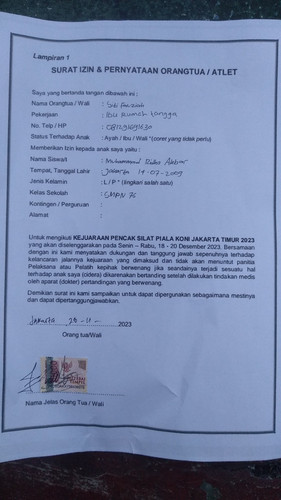 Lampiran 1
SURAT IZIN & PERNYATAAN ORANGTUA / ATLET
Saya yang bertanda tangan dibawah ini :
Nama Orangtua / Wali :
Pekerjaan : Ibu Rumah tangga
No. Telp / HP :
Status Terhadap Anak : Ayah / Ibu / Wali *(coret yang tidak perlu)
Memberikan Izin kepada anak saya yaitu :
Nama Siswa/i : Muhammad
Tempat, Tanggal Lahir : Jakarta 19-07-2009
Jenis Kelamin : L / P * (lingkari salah satu)
Kelas Sekolah : SMPN 76
Kontingen / Perguruan :
Alamat :
Untuk mengikuti KEJUARAAN PENCAK SILAT PIALA KONI JAKARTA TIMUR 2023
yang akan diselenggarakan pada Senin – Rabu, 18 - 20 Desember 2023. Bersamaan
dengan ini kami menyatakan dukungan dan tanggung jawab sepenuhnya terhadap
kelancaran jalannya kejuaraan yang dimaksud dan tidak akan menuntut panitia
Pelaksana atau Pelatih kepihak berwenang jika seandainya terjadi sesuatu hal
terhadap anak saya (cidera) dikarenakan bertanding setelah dilakukan tindakan medis
oleh aparat (dokter) pertandingan yang berwenang.
Demikian surat ini kami sampaikan untuk dapat dipergunakan sebagaimana mestinya
dan dapat dipertanggungjawabkan.
Jakarta 28 - 11 - 2023
Orang tua/Wali
Nama Jelas Orang Tua / Wali